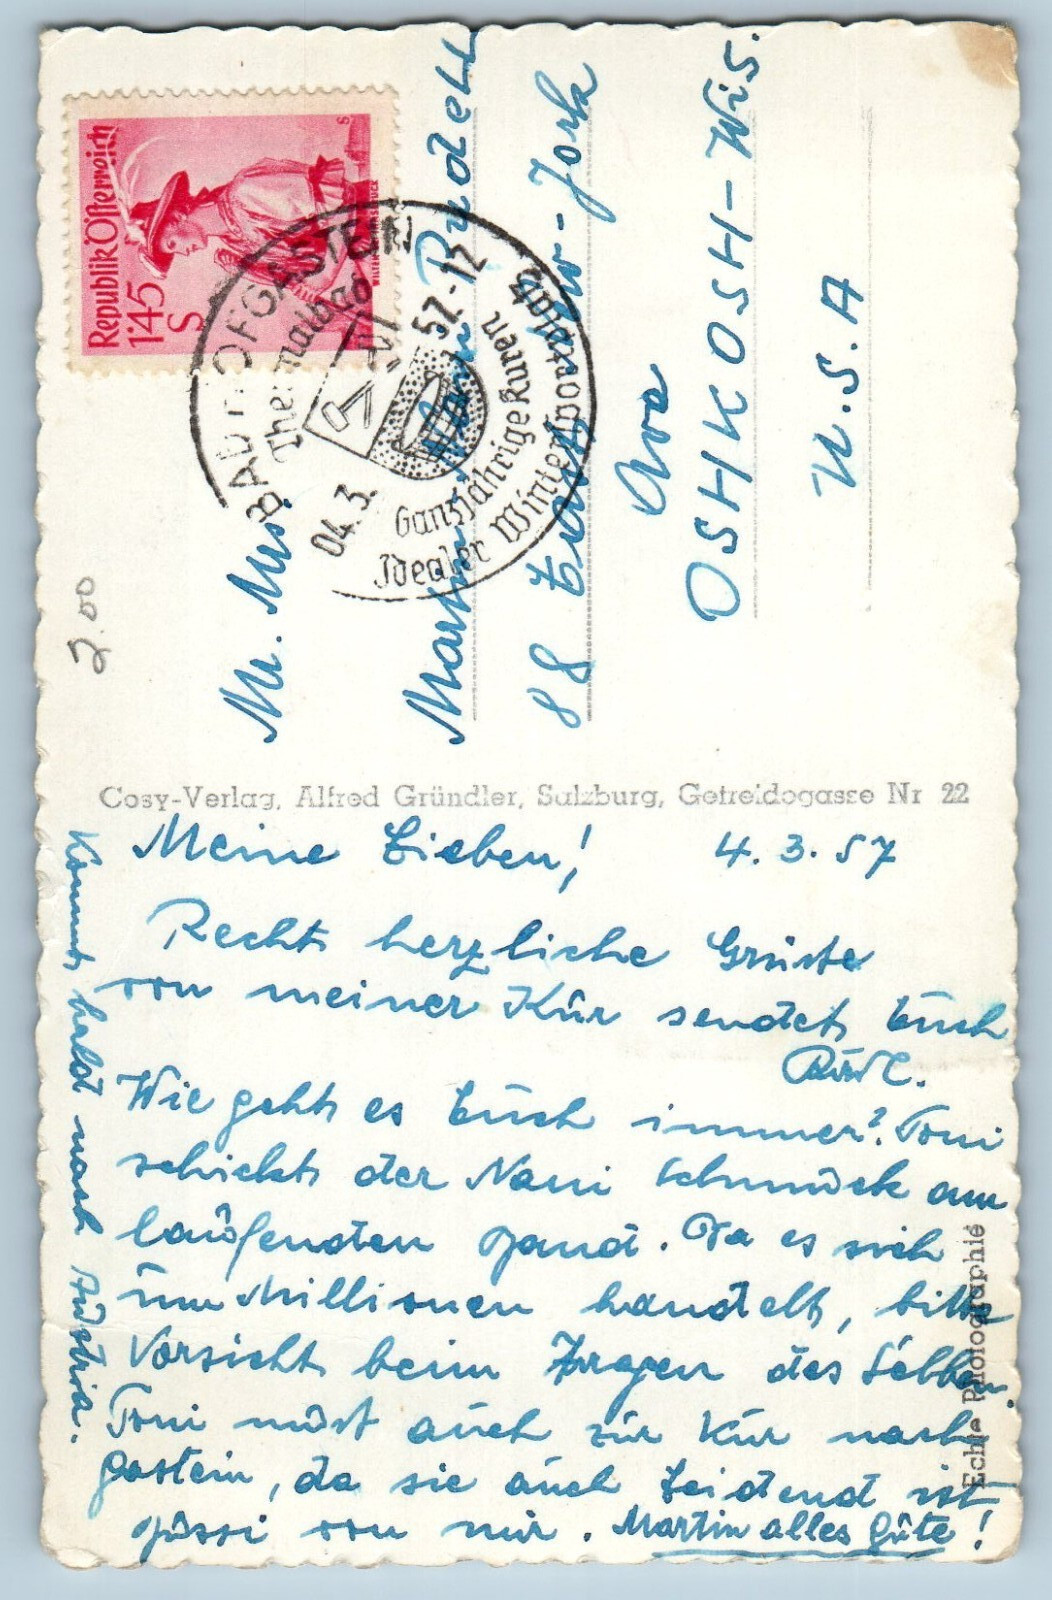 Republik Österreich
1'45
S
BAD HOFGASTEIN
Thermalbad
04.3. 57-12
VI
Ganzjährige Kuren
Idealer Wintersportplatz
Mr. Mrs.
Martin, Nani Rudell
88 East New-York
Ava
OSHKOSH-Wis.
U.S.A
2.00
Cosy-Verlag, Alfred Gründler, Salzburg, Getreidegasse Nr 22
Meine Lieben! 4.3.57
Recht herzliche Grüsse
von meiner Kur sendet Euch
Rudl.
Wie geht es Euch immer? Toni
schickt der Nani Schmuck am
laufenden Band. Da es sich
um Millionen handelt, bitte
Vorsicht beim Tragen des Selben.
Toni must auch zur Kur nach
Gastein, da sie auch Leidend ist
Bussi von mir. Martin alles Gute!
Kommt bald nach Austria.
Echte Photographie